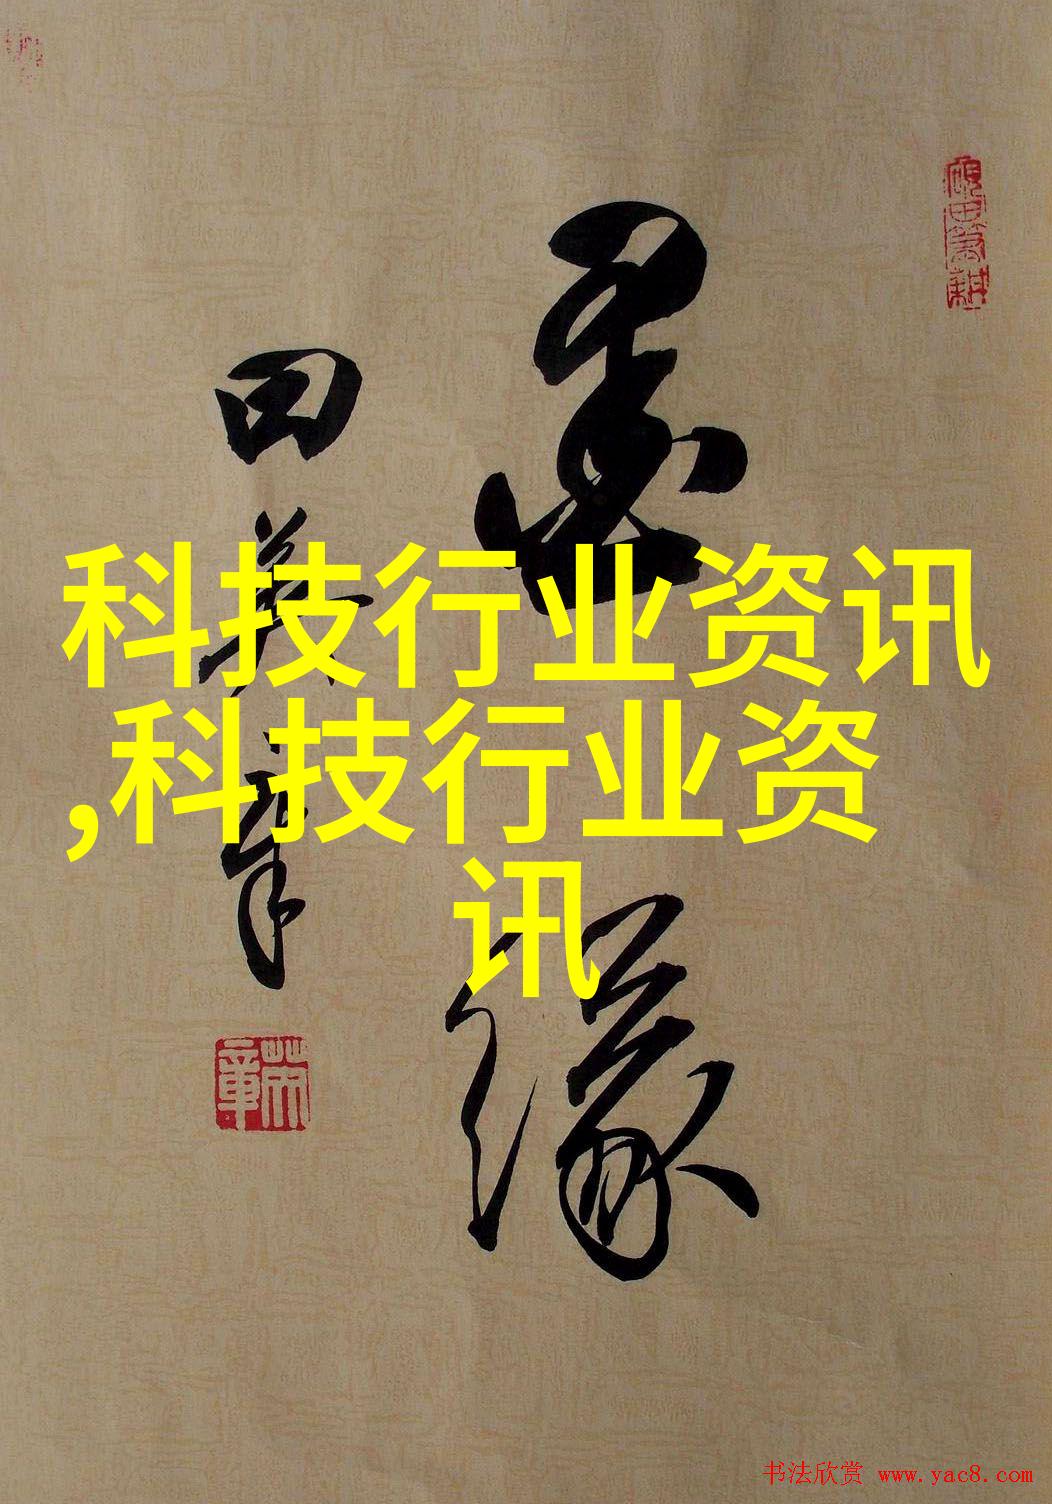 墨缘
田英章
科技行业资讯
,科技行业资
讯
书法欣赏 www.yac8.com